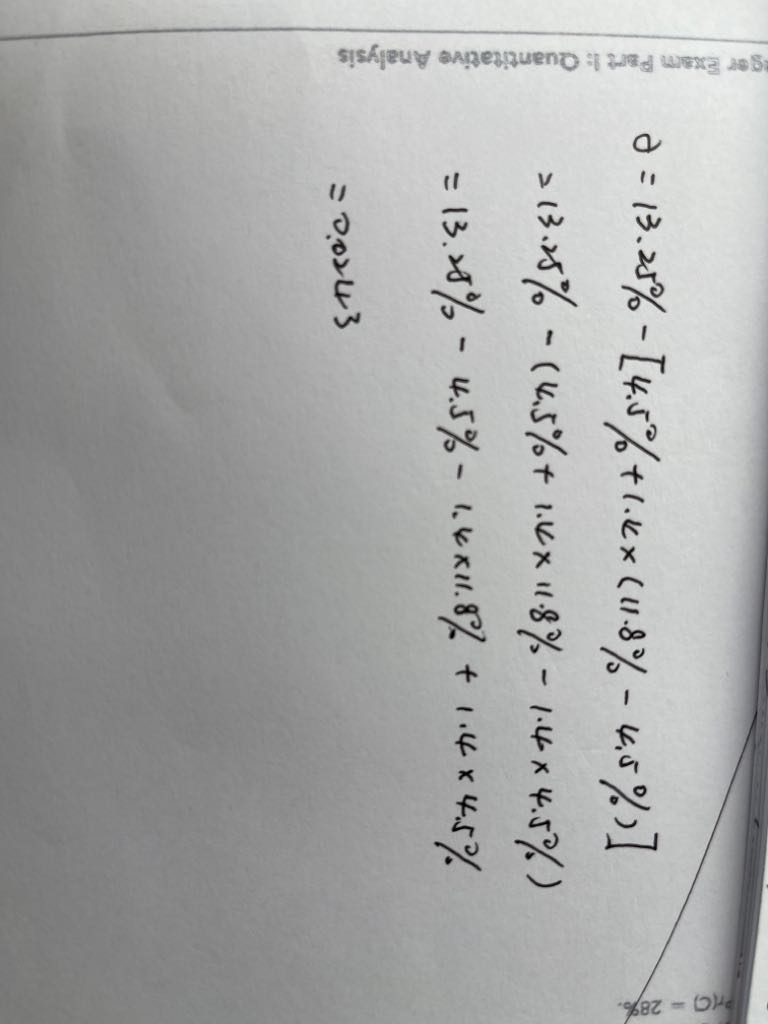 ager Exam Part I: Quantitative Analysis
∂ = 13.25% - [4.5% + 1.4 × (11.8% - 4.5%)]
= 13.25% - (4.5% + 1.4 × 11.8% - 1.4 × 4.5%)
= 13.25% - 4.5% - 1.4×11.8% + 1.4 × 4.5%
= 0.0243
Pr(C) = 28%.